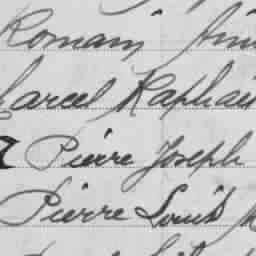 Romain
Marcel Raphael
Pierre Joseph
Pierre Louis